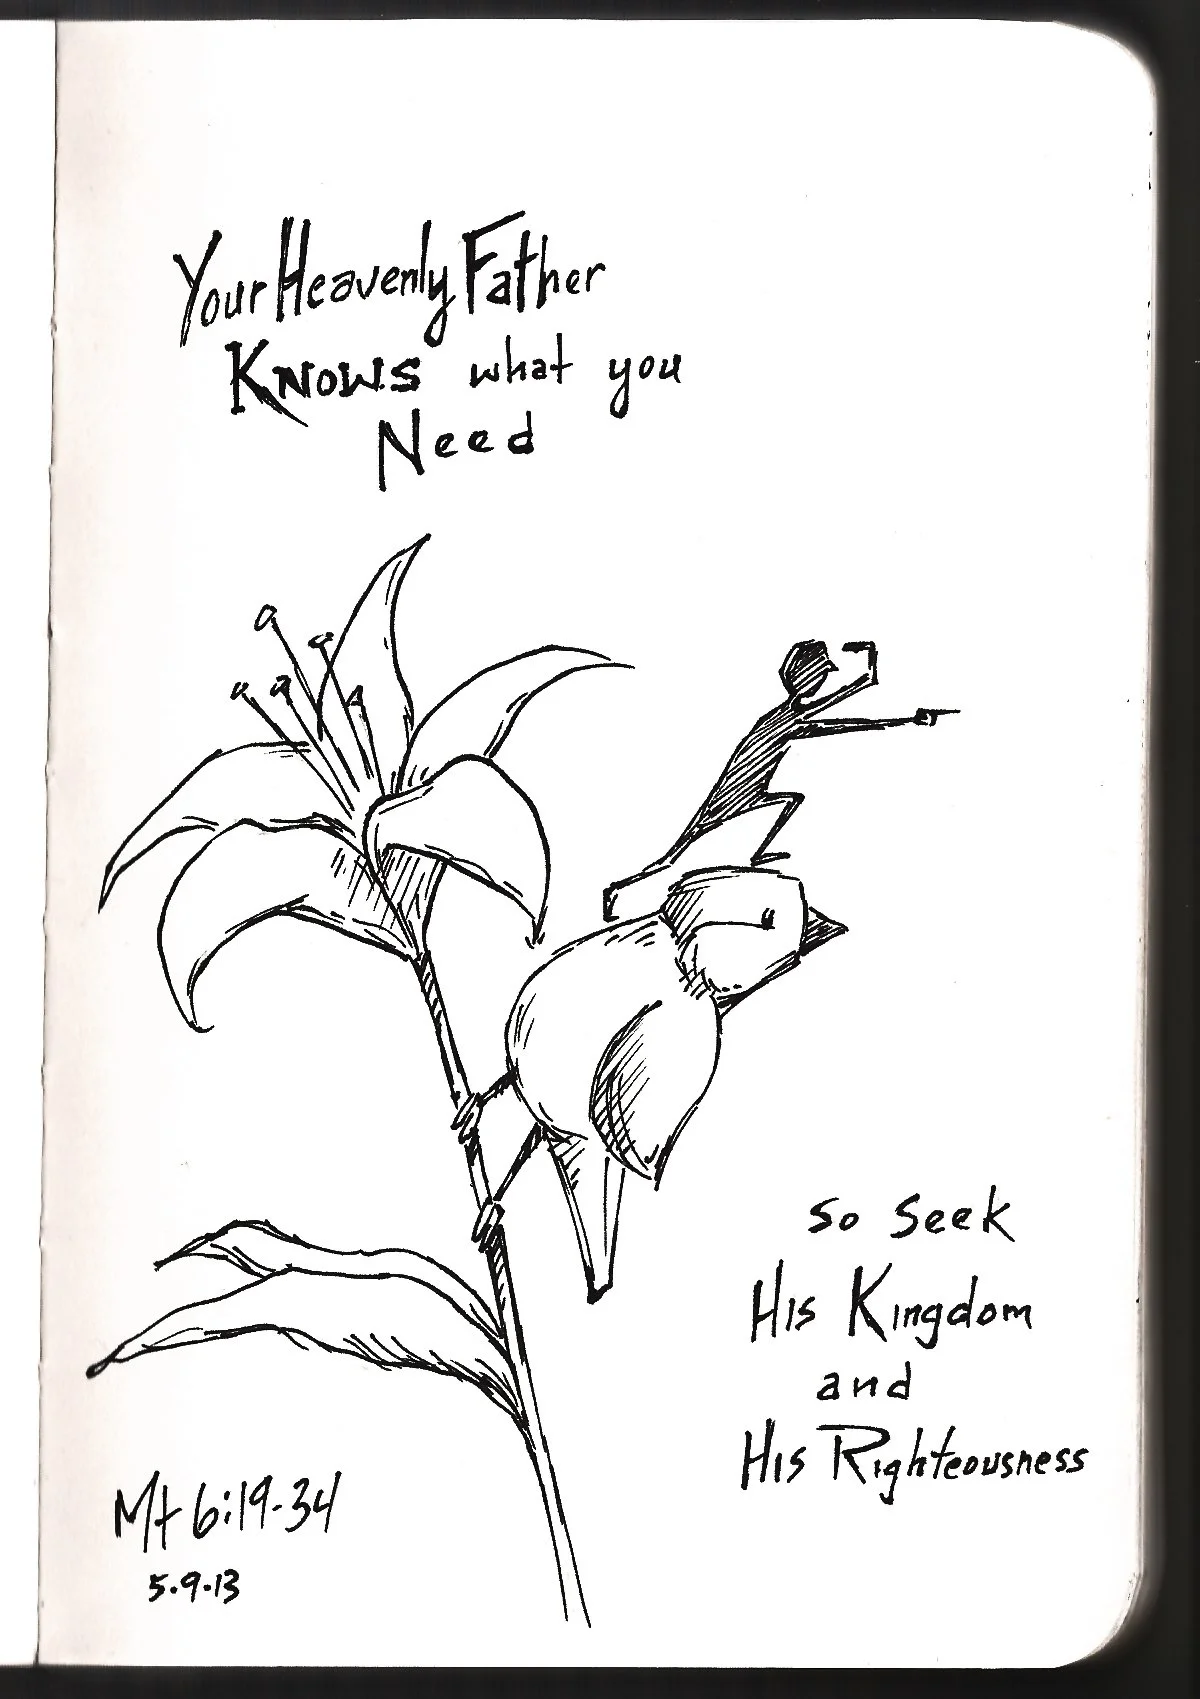 Your Heavenly Father
Knows what you
Need
So Seek
His Kingdom
and
His Righteousness
Mt 6:19-34
5.9.13